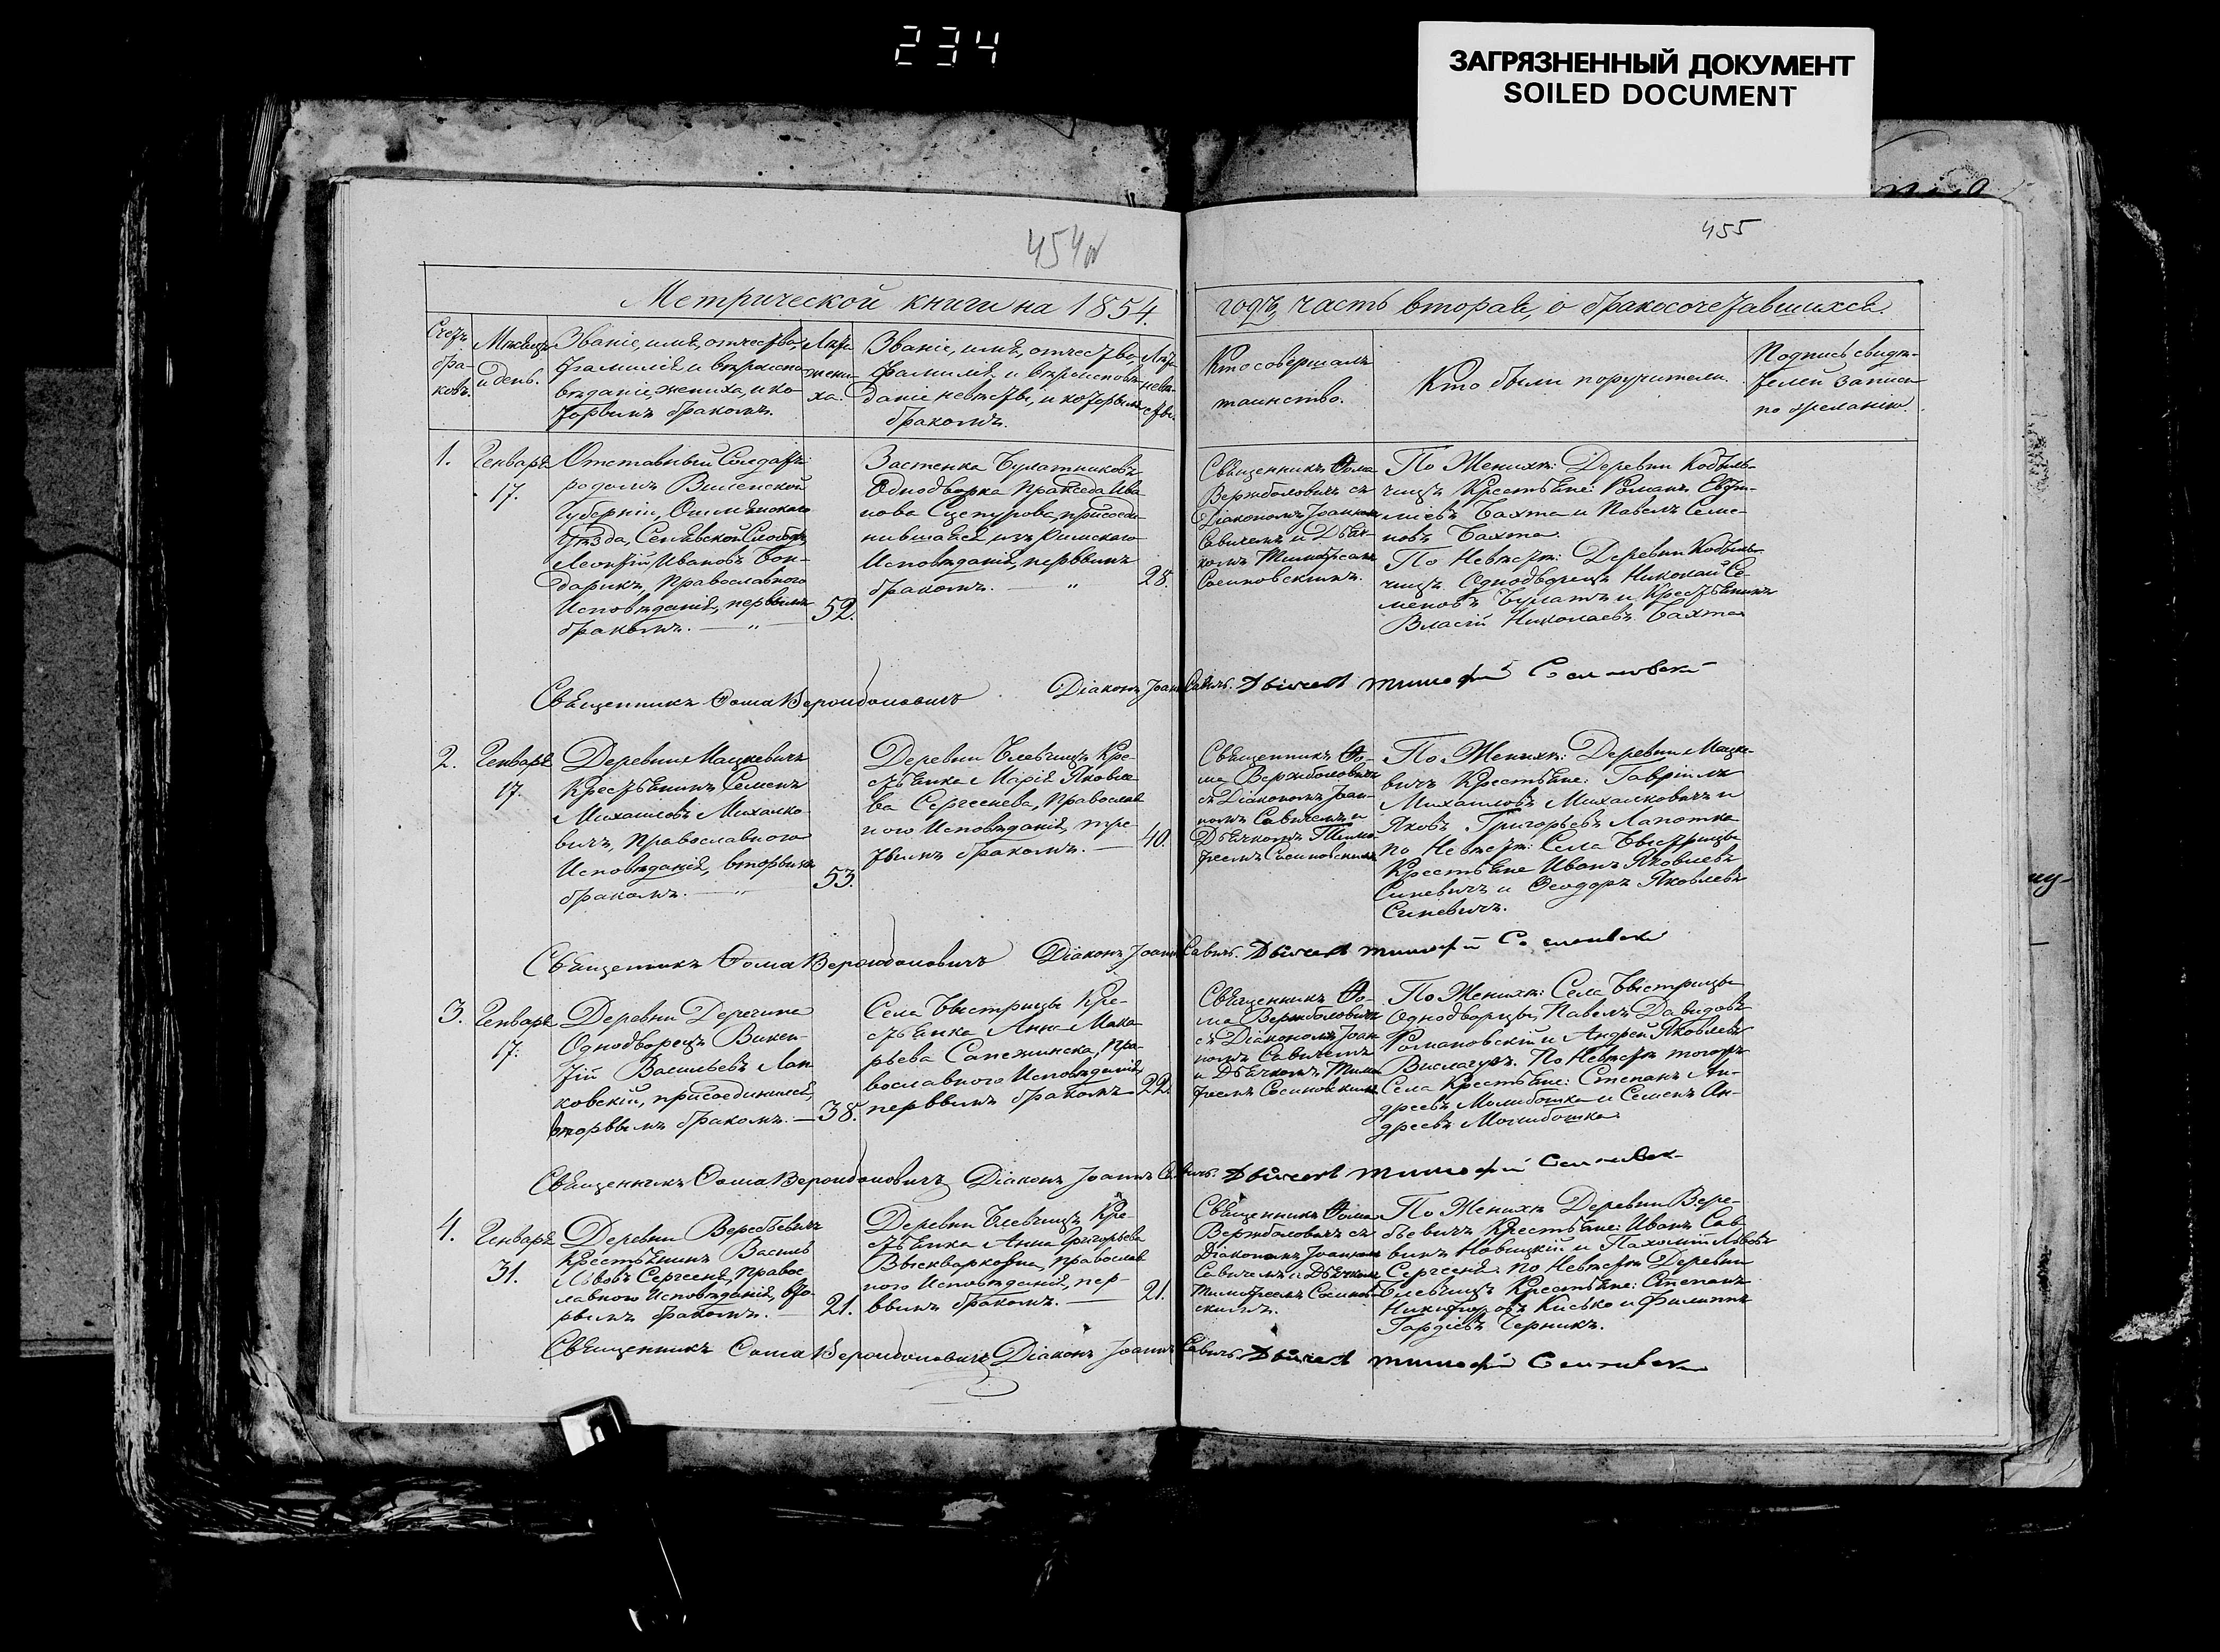 234
ЗАГРЯЗНЕННЫЙ ДОКУМЕНТ
SOILED DOCUMENT
455
Метрической книги на 1854.
годъ, часть вторая, о бракосочетавшихся.
Счетъ
бра-
ковъ.
Мѣсяцъ
и день.
Званіе, имя, отчество,
фамилія и вѣроиспо-
вѣданіе жениха, и ко-
торымъ бракомъ.
Лѣта
жени-
ха.
Званіе, имя, отчество,
фамилія и вѣроисповѣ-
даніе невѣсты, и которымъ
бракомъ.
Лѣта
невѣ-
сты.
Кто совершалъ
таинство.
Кто были поручители.
Подпись свидѣ-
телей записи
по желанію.
1.
Генваря
17.
Отставный Солдатъ
родомъ Виленской
Губерніи, Ошмянскаго
Уѣзда,
Леонтій Ивановъ Бон-
дарикъ, Православнаго
Исповѣданія, первымъ
бракомъ. — „ —
52.
Застенка Булатниковъ
Однодворка Праксѣда Ива
нова Сцепурова, присоеди-
нившаяся изъ Римскаго
Исповѣданія, первымъ
бракомъ. — „
28.
Священникъ Ѳома
Вержболовичъ съ
Діакономъ Іоанномъ
Савичемъ и Дьяч-
комъ Тимофеемъ
Сосиновскимъ.
По Женихѣ: Деревни Кобыль-
чицъ Крестьяне: Романъ Евфи-
міевъ Бахта и Павелъ Семе-
новъ Бахта.
По Невѣстѣ: Деревни Кобыль-
чицъ Однодворецъ Николай Се-
меновъ Булатъ и Крестьянинъ
Власій Николаевъ Бахта
Священникъ Ѳома Вержболовичъ Діаконъ Іоаннъ Савичъ. Дьячекъ Тимофей Сосиновскі
2.
Генваря
17.
Деревни Мацкевичъ
Крестьянинъ Семенъ
Михаиловъ Михалко-
вичъ, Православнаго
Исповѣданія, вторымъ
бракомъ. — „
53.
Деревни Блевчицъ Кре-
стьянка Марія Яковле-
ва Сергеенева, Православ
ного Исповѣданія, тре-
тьимъ бракомъ. —
40.
Священникъ Ѳо-
ма Вержболовичъ
съ Діакономъ Іоан-
номъ Савичемъ и
Дьячкомъ Тимо-
феемъ Сосиновскимъ
По Женихѣ: Деревни Мацке-
вичъ Крестьяне: Гавріилъ
Михаиловъ Михалковичъ и
Яковъ Григорьевъ Лапотка
по Невѣстѣ: Села Быстрицы
Крестьяне Иванъ Яковлевъ
Синевичъ и Ѳеодоръ Яковлевъ
Синевичъ.
Священникъ Ѳома Вержболовичъ Діаконъ Іоаннъ Савичъ. Дьячекъ Тимофей Сосиновскі
3.
Генваря
17.
Деревни Деречина
Однодворецъ Викен-
тій Васильевъ Лап
ковскій, присоединился,
вторымъ бракомъ. —
38.
Села Быстрицы Кре-
стьянка Анна Мака-
рьева Сапежинска, Пра-
вославного Исповѣданія,
первымъ бракомъ —
22.
Священникъ Ѳо-
ма Вержболовичъ
съ Діакономъ Іоан
номъ Савичемъ
и Дьячкомъ Тимо
феемъ Сосиновскимъ
По Женихѣ: Села Быстрицы
Однодворцы, Павелъ Давидовъ
Романовскій и Андрей Яковлевъ
Вислагузъ. По Невѣстѣ тогожъ
Села Крестьяне: Степанъ Ан-
дреевъ Молибошка и Семенъ Ан-
дреевъ Молибошка.
Священникъ Ѳома Вержболовичъ Діаконъ Іоаннъ Савичъ. Дьячекъ Тимофей Сосиновск
4.
Генваря
31.
Деревни Веребьевичъ
Крестьянинъ Василь
Львовъ Сергееня, Право
славного Исповѣданія, вто-
рымъ бракомъ. —
21.
Деревни Блевчицъ Кре-
стьянка Анна Григорьева
Выскваркова, Православ
ного Исповѣданія, пер-
вымъ бракомъ. —
21.
Священникъ Ѳома
Вержболовичъ съ
Діакономъ Іоанномъ
Савичемъ и Дьячкомъ
Тимофеемъ Сосинов-
скимъ.
По Женихѣ Деревни Вере-
бьевичъ Крестьяне: Иванъ Сав-
винъ Новицкій и Пахомій Львовъ
Сергееня: по Невѣстѣ Деревни
Блевчицъ Крестьяне: Степанъ
Никифоровъ Кисько и Филиппъ
Гордіевъ Черникъ.
Священникъ Ѳома Вержболовичъ Діаконъ Іоаннъ Савичъ. Дьячекъ Тимофей Сосиновск